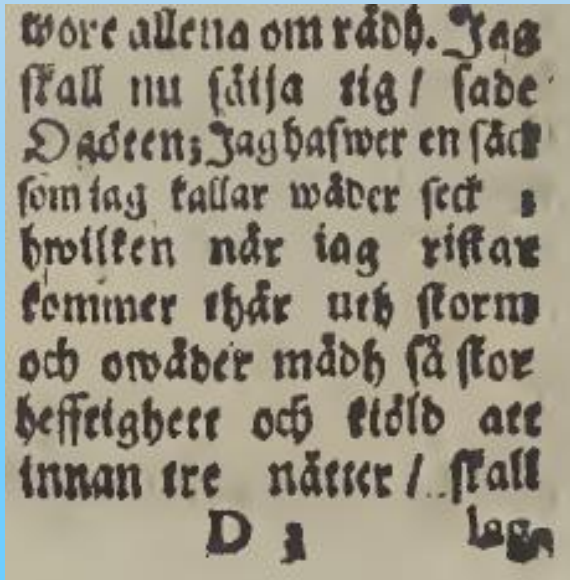 wore allena om rådh. Jag
skall nu säija tig / sade
Ogöten; Jag hafwer en säck
som iag kallar wäder seck ;
hwilken när iag ristar
kommer thär uth storm
och owäder mädh så stor
heftighett och kiöld att
innan tre nätter / skall
D iag